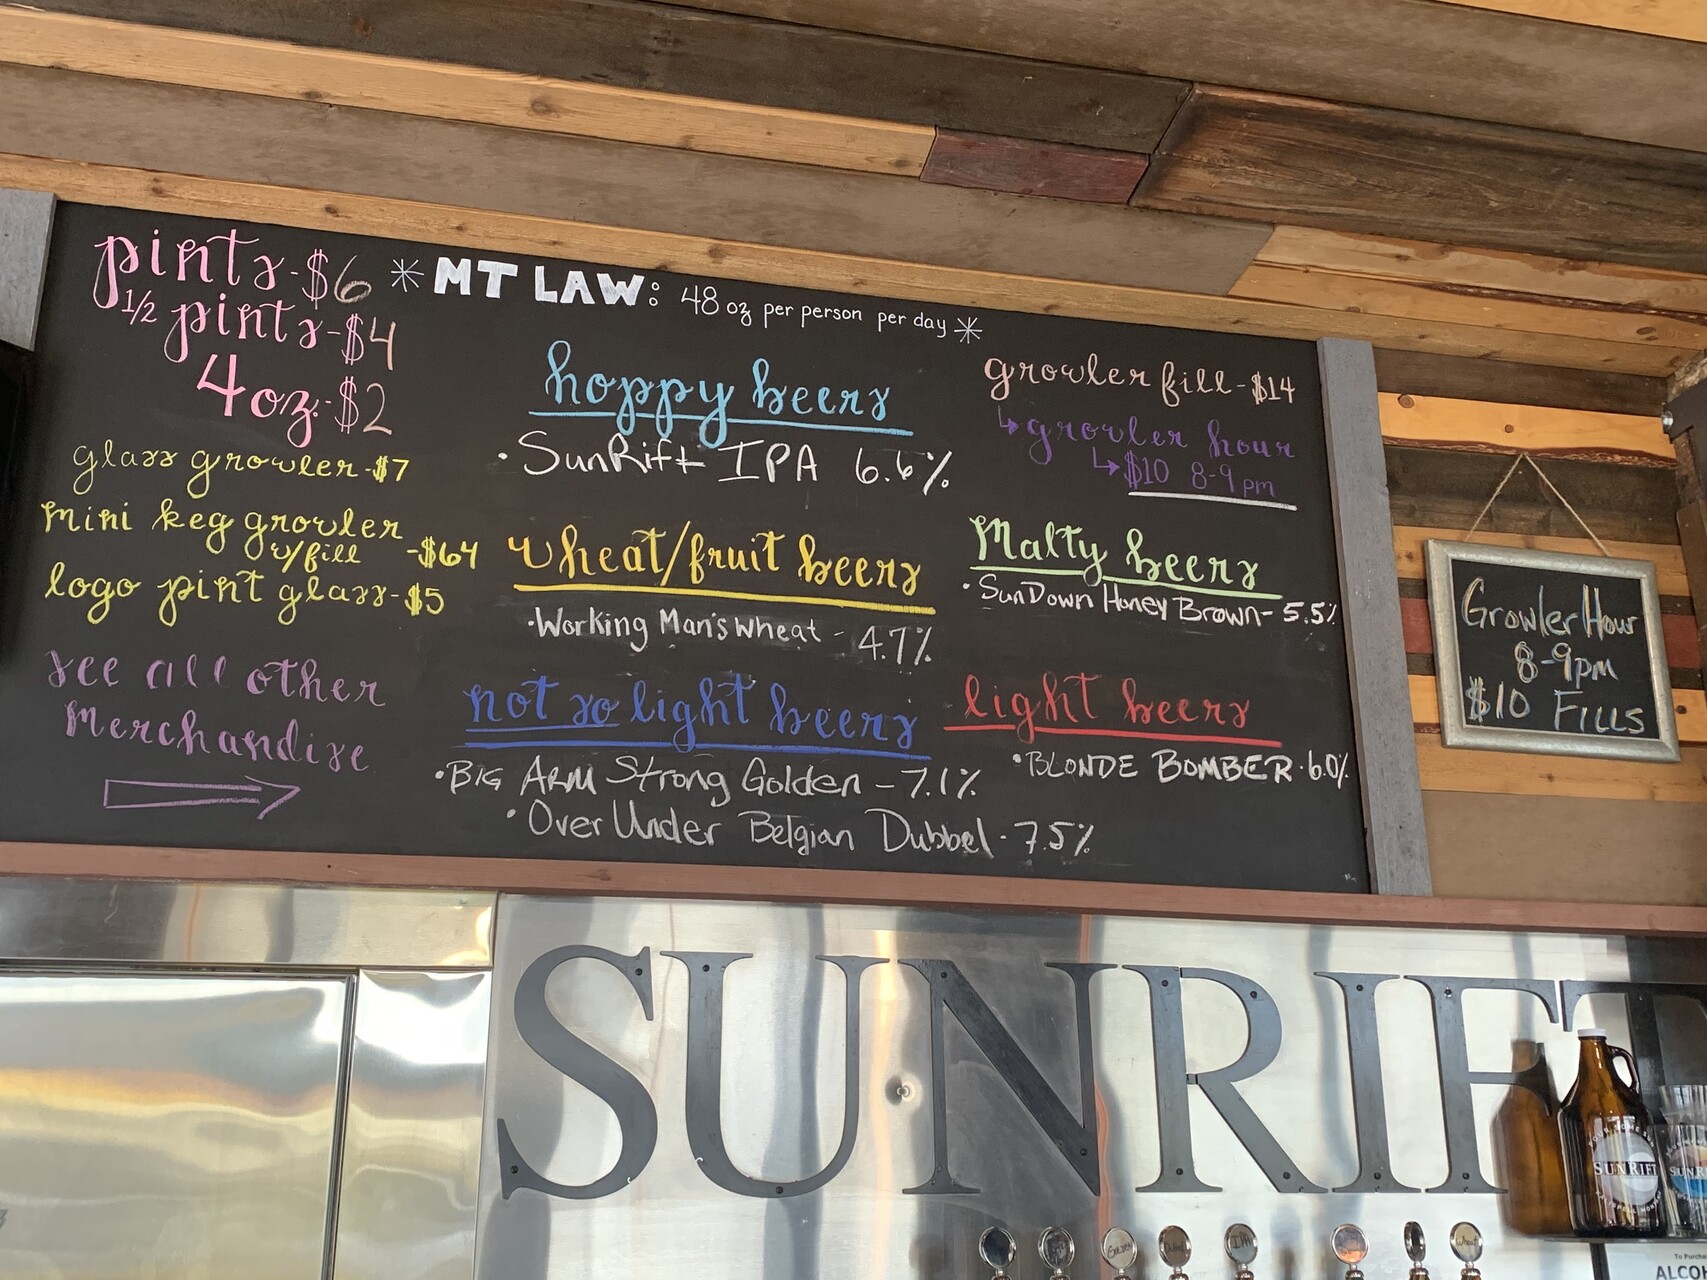 pints-$6
1/2 pints-$4
4oz.-$2
glass growler-$7
mini keg growler
w/fill -$64
logo pint glass-$5
see all other
merchandise
*MT LAW: 48 oz per person per day*
hoppy beers
·SunRift IPA 6.6%
wheat/fruit beers
·Working Man's Wheat - 4.7%
not so light beers
·BIG ARM Strong Golden - 7.1%
·Over Under Belgian Dubbel · 7.5%
growler fill-$14
growler hour
$10 8-9pm
Malty beers
·SunDown Honey Brown - 5.5%
light beers
·BLONDE BOMBER · 6.0%
Growler Hour
8-9pm
$10 FILLS
SUNRIFT
SUNRIFT
IPA
Wheat
To Purchase